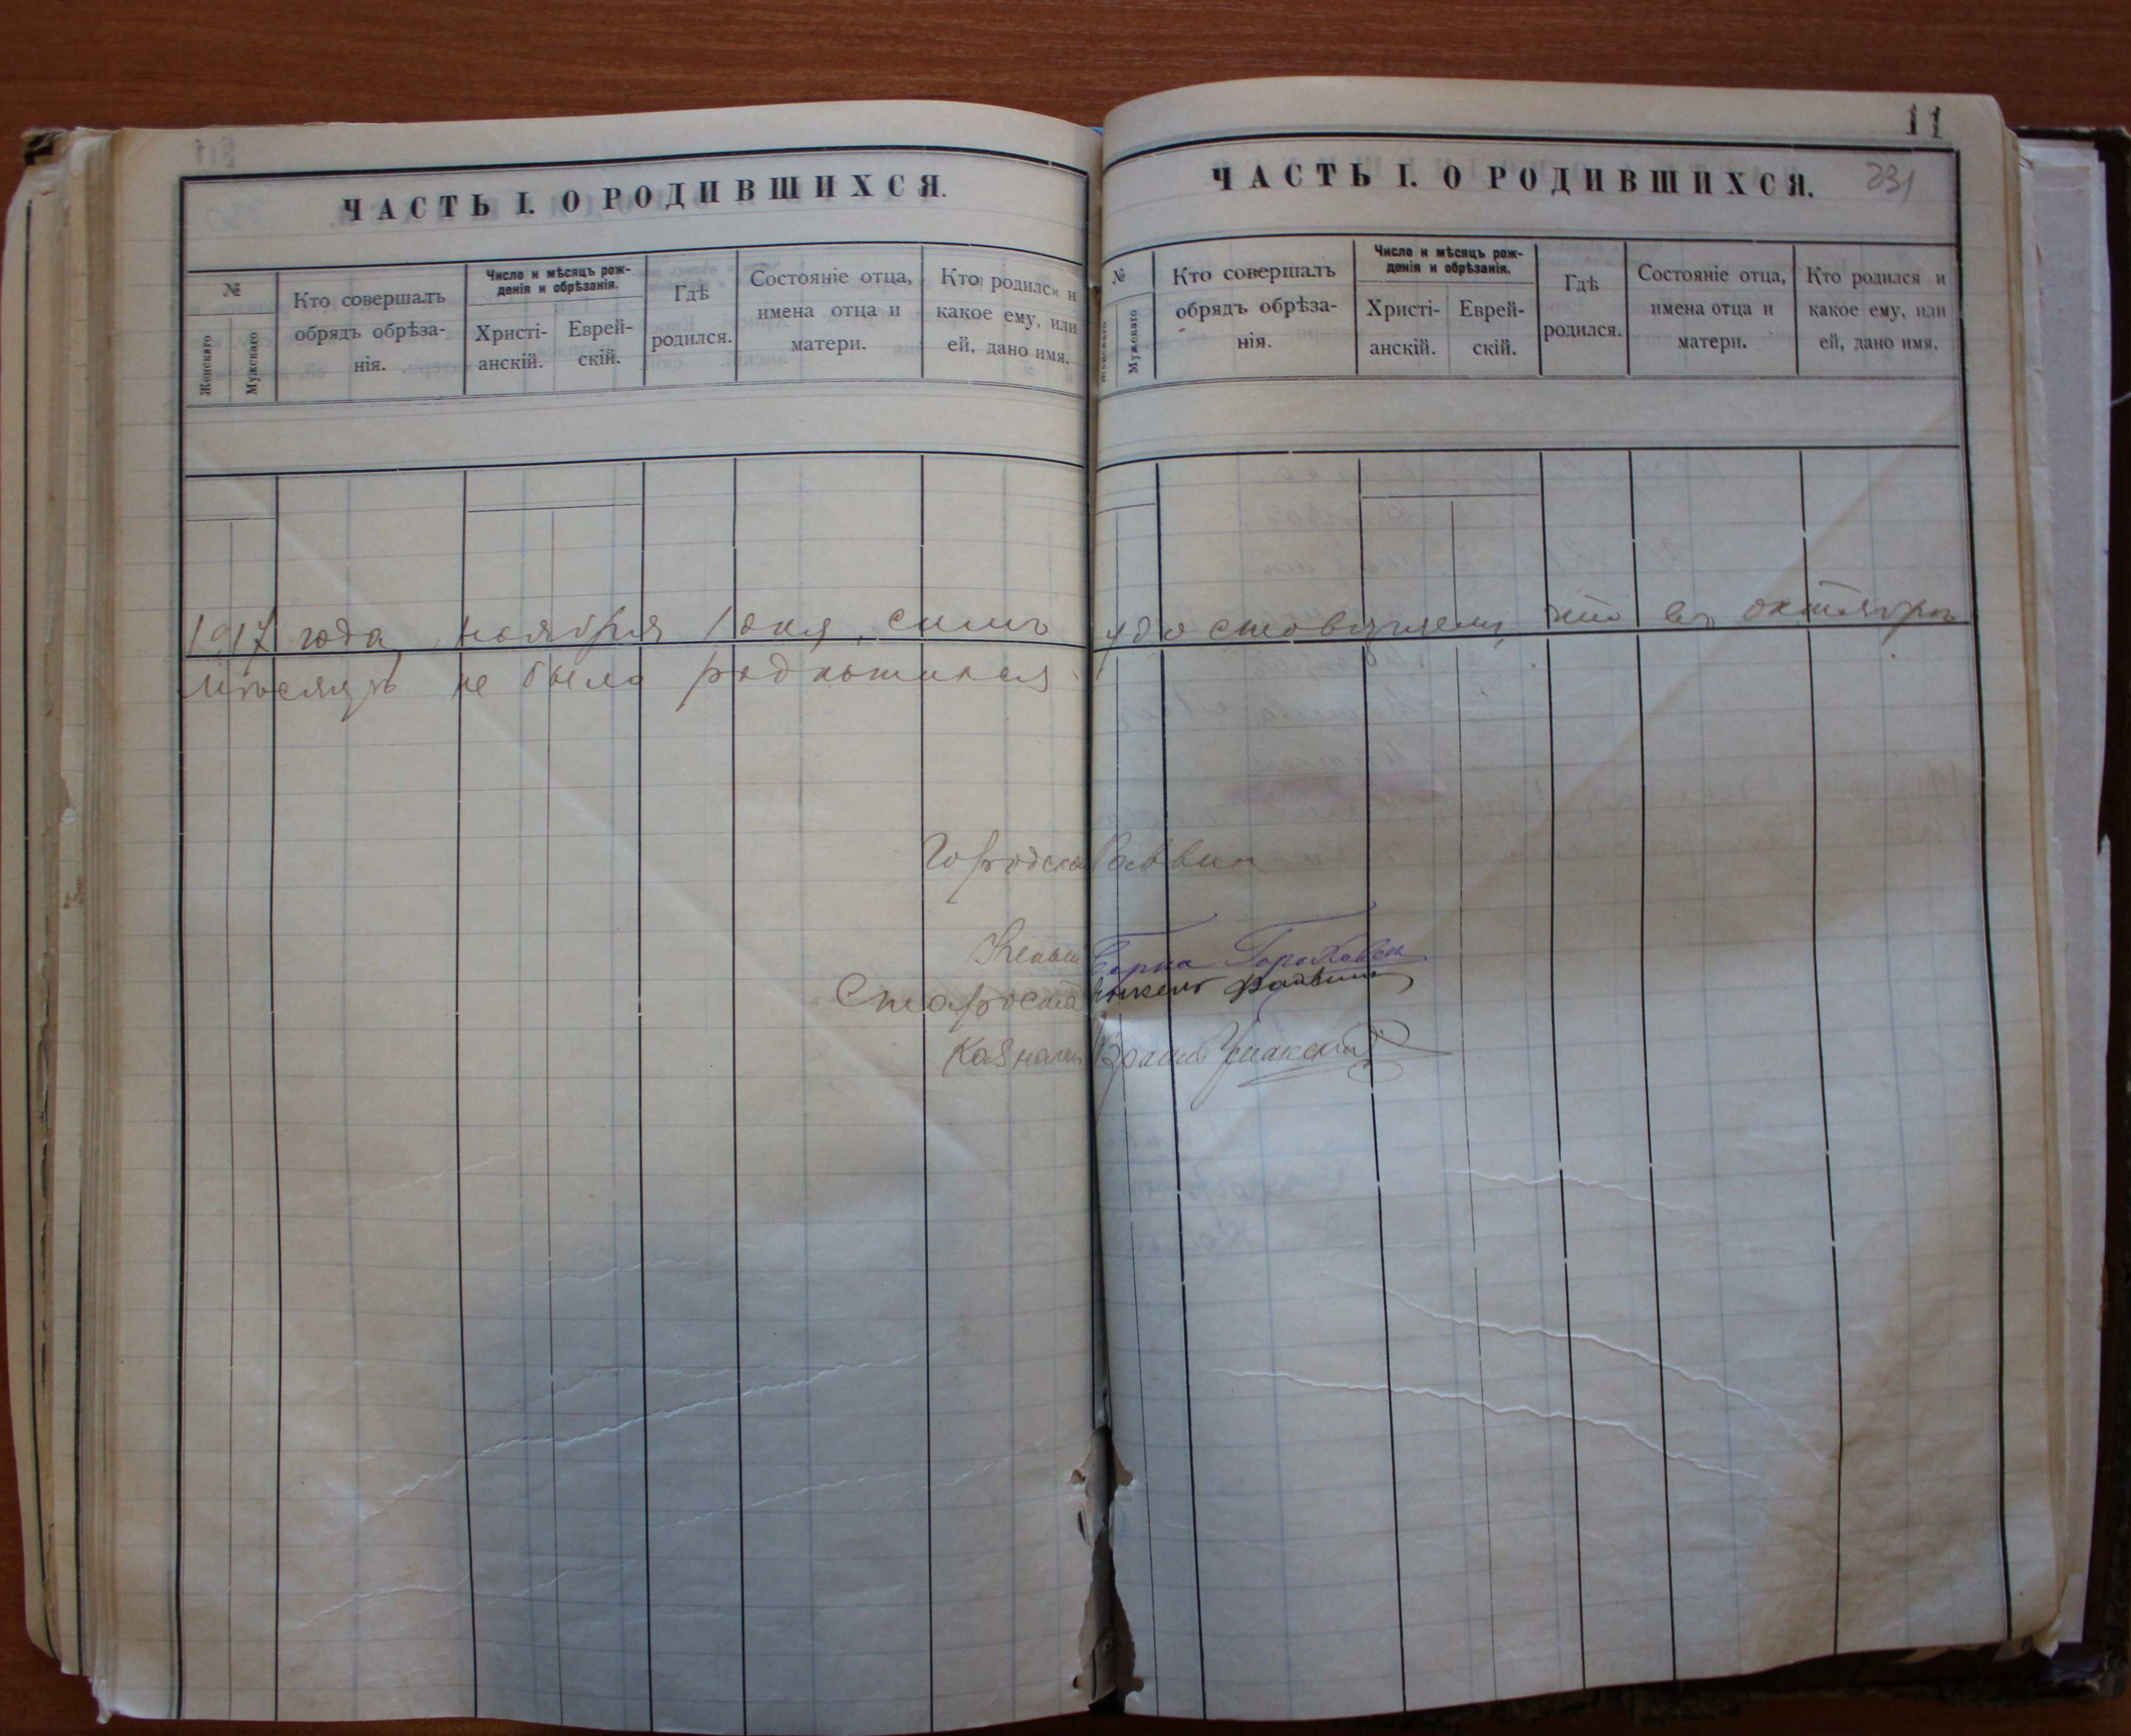 ЧАСТЬ I. О РОДИВШИХСЯ.
№
Женскаго
Мужскаго
Кто совершалъ
обрядъ обрѣза-
нія.
Число и мѣсяцъ рож-
денія и обрѣзанія.
Христі-
анскій.
Еврей-
скій.
Гдѣ
родился.
Состояніе отца,
имена отца и
матери.
Кто родился и
какое ему, или
ей, дано имя.
11
ЧАСТЬ I. О РОДИВШИХСЯ.
231
№
Женскаго
Мужскаго
Кто совершалъ
обрядъ обрѣза-
нія.
Число и мѣсяцъ рож-
денія и обрѣзанія.
Христі-
анскій.
Еврей-
скій.
Гдѣ
родился.
Состояніе отца,
имена отца и
матери.
Кто родился и
какое ему, или
ей, дано имя.
1917 года ноября 1 дня, симъ удостовѣряемъ, что въ октябрѣ
мѣсяцѣ не было родившихся.
Городской Раввин
Ученый
Староста
Казначей